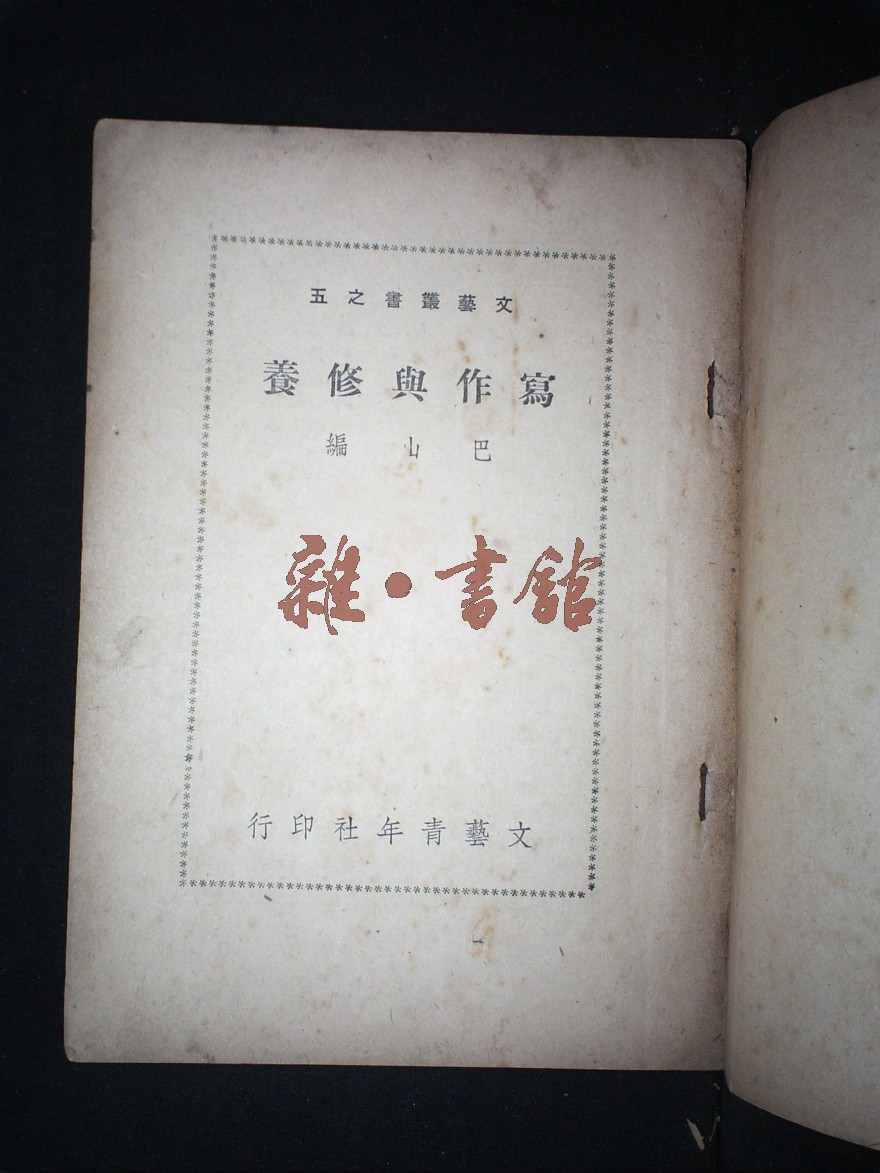 文藝叢書之五
寫作與修養
巴山編
雜·書館
文藝青年社印行